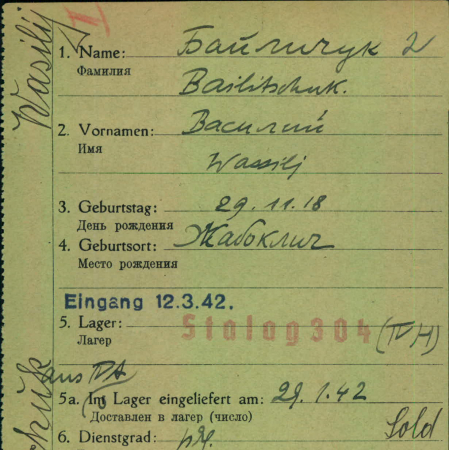 Wasilij
1. Name: Байличук
Фамилия
Bailitschuk.
2. Vornamen: Василий
Имя
Wassilj
3. Geburtstag: 29.11.18
День рождения
4. Geburtsort: Жабоклич
Место рождения
Eingang 12.3.42.
5. Lager: Stalag 304 (IV H)
Лагерь
aus
5a. Im Lager eingeliefert am: 29.1.42
Доставлен в лагерь (число)
6. Dienstgrad: Sold